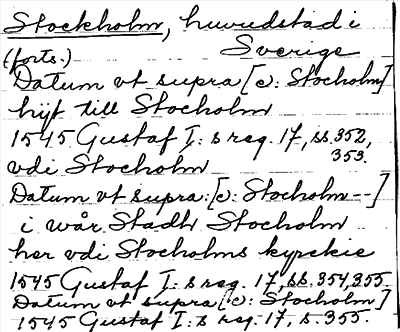 Stockholm, huvudstad i
(forts.) Sverige
Datum vt supra [ɔ: Stocholm]
hijt till Stocholm
1545 Gustaf I:s reg. 17, ss. 352,
353.
vdi Stocholm
Datum vt supra: [ɔ: Stocholm--]
i wår Stadh Stocholm
her vdi Stocholms kyrckie
1545 Gustaf I:s reg. 17, ss. 354, 355.
Datum vt supra [ɔ: Stocholm]
1545 Gustaf I:s reg. 17 s. 355.